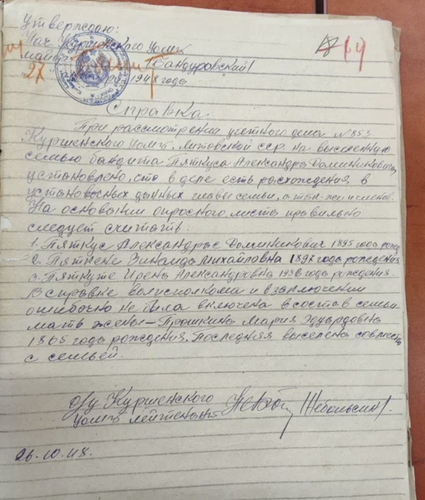 Утверждаю:
Нач. Куршенского Уомгб
майор
Мандуровский/
1948 года
27
64
Справка.
При рассмотрении учетного дела № 853
Куршенского Уомгб, Литовской сср. на выселенную
семью бандита Пяткуса Александра Доминиковича,
установлено, что в деле есть расхождения в
установочных данных главы семьи, а так-же и членов.
На основании опросного листа правильно
следует считать:
1. Пяткус Александрас Доминикович 1895 года рожд.
2. Пяткене Зинаида Михайловна 1898 года рождения
3. Пяткуте Ирена Александровна 1936 года рождения.
В справке волисполкома и в заключении
ошибочно не была включена в состав семьи
мать жены — Прошкина Мария Эдуардовна
1865 года рождения. Последняя выселена совместно
с семьей.
О/у Куршенского
Уомгб лейтенант
26.10.48.